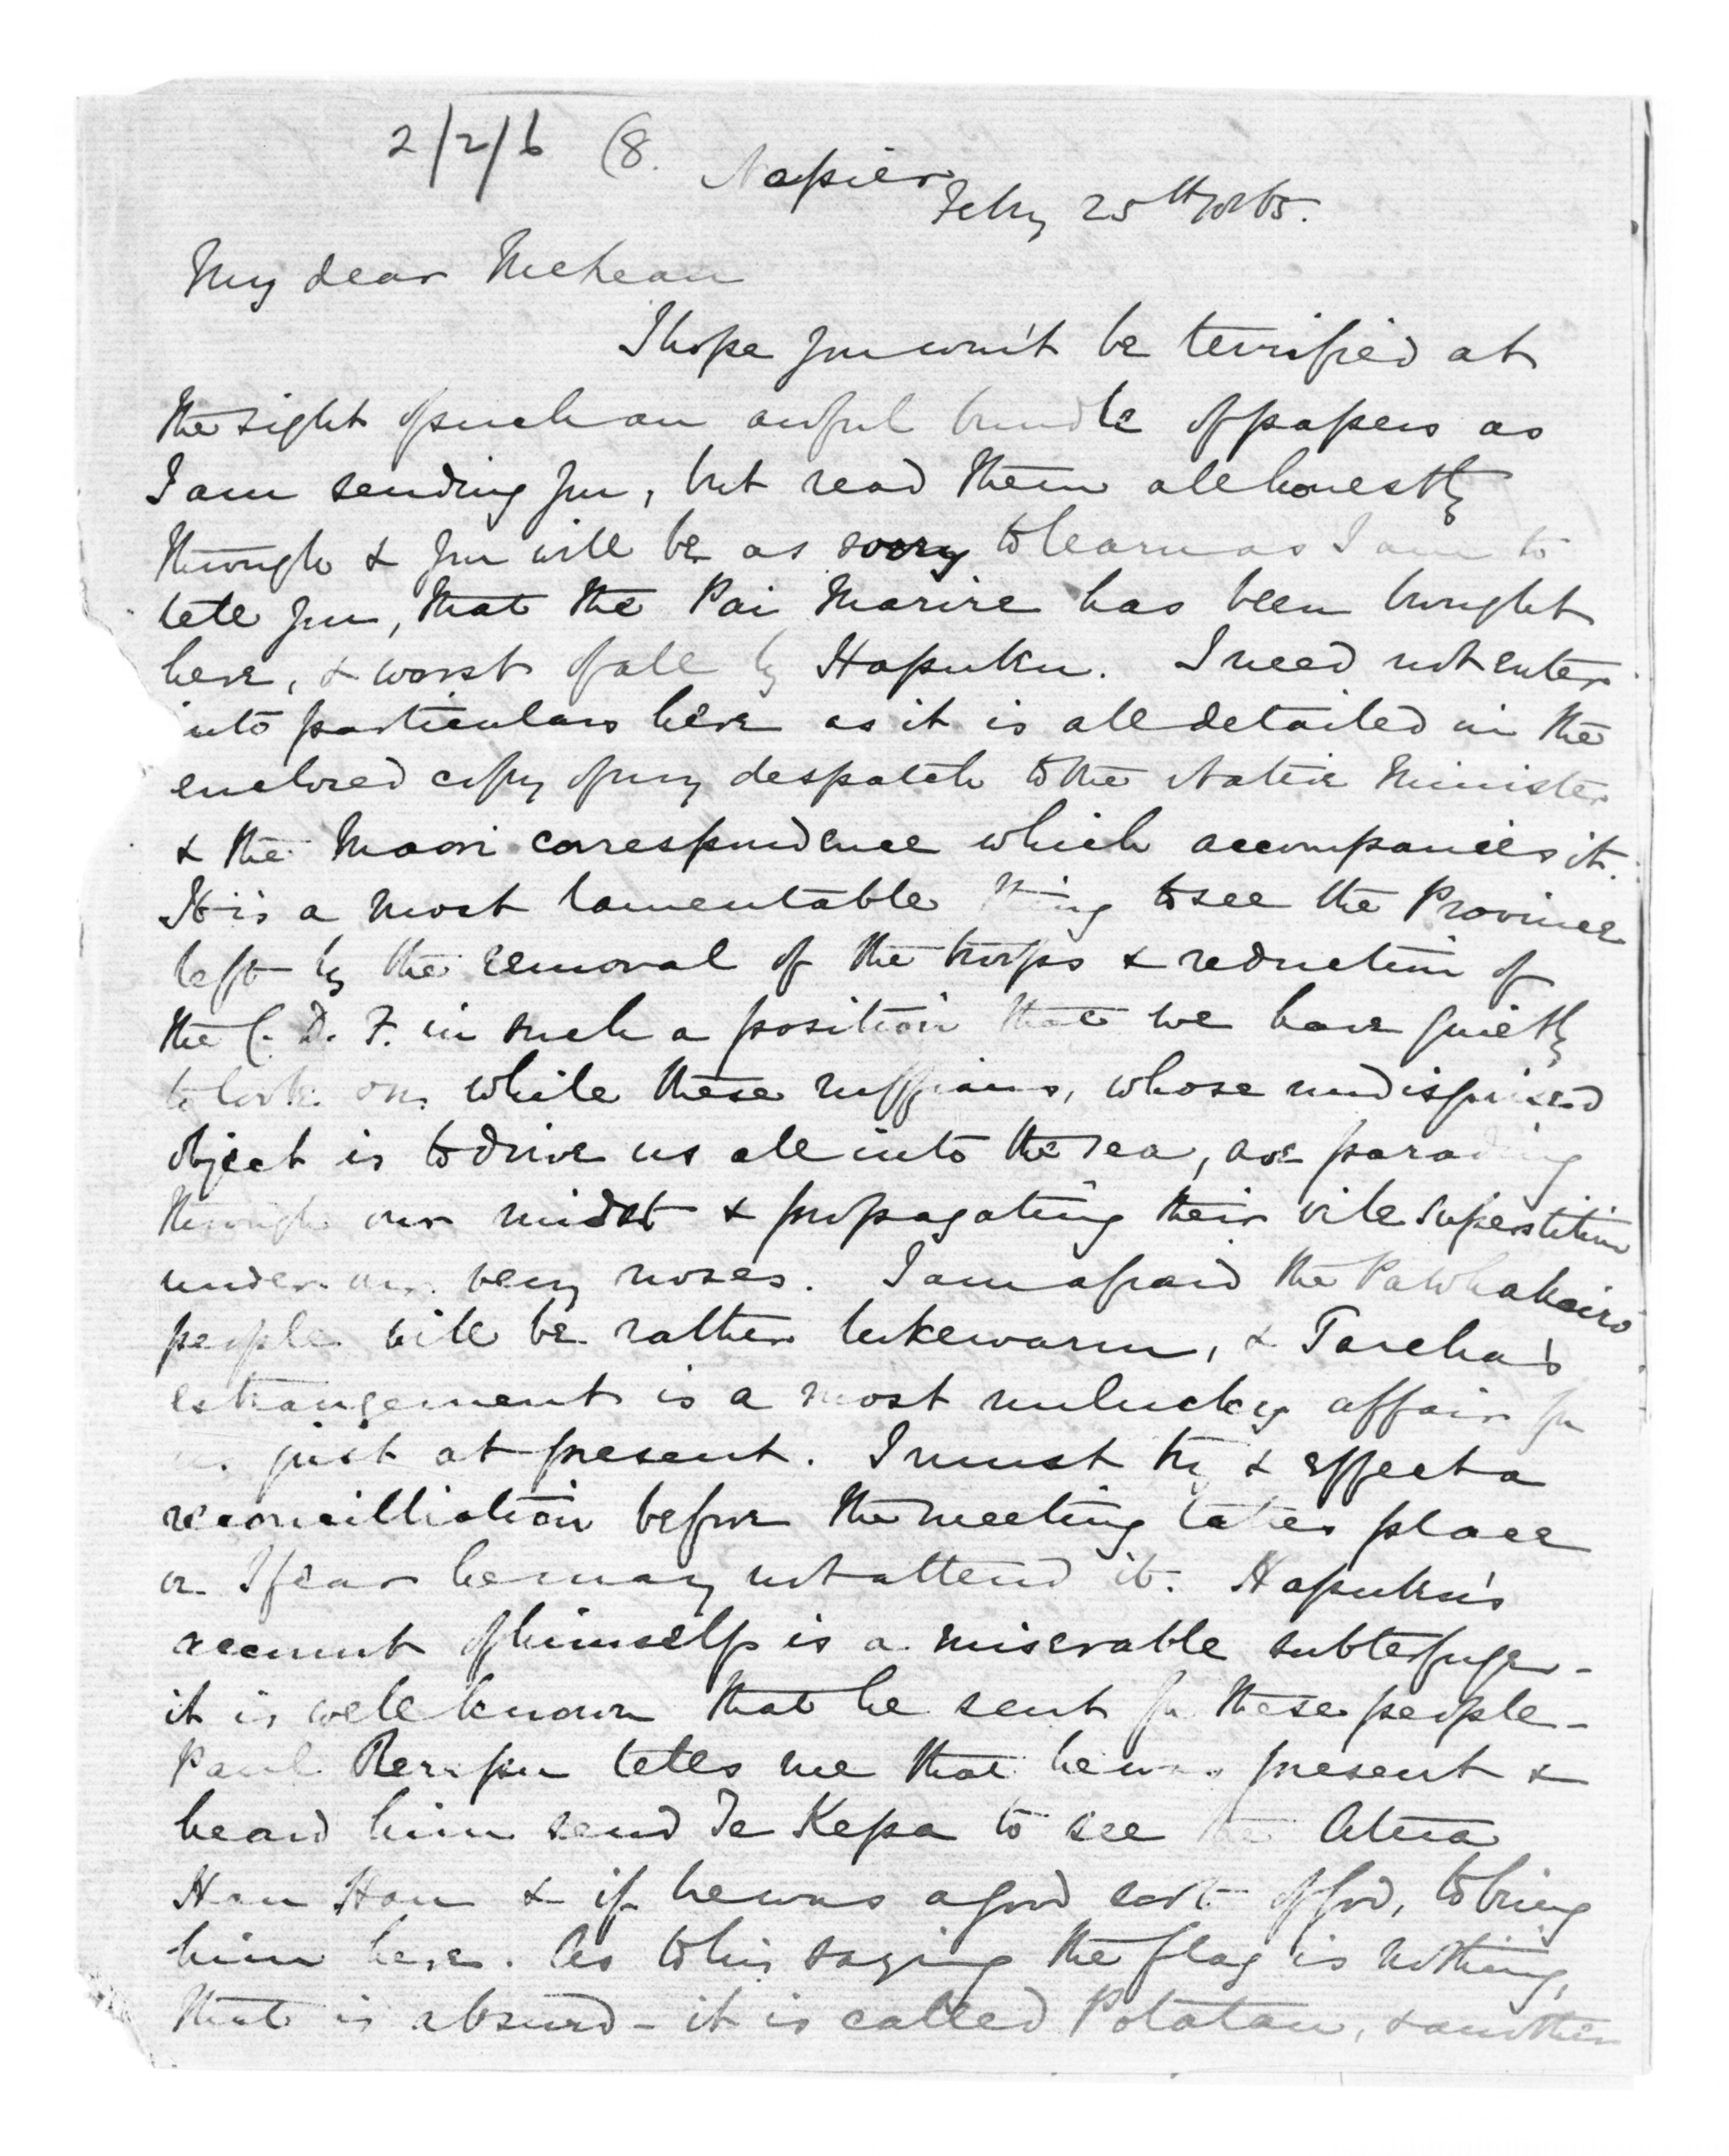 2/2/6 (8.
Napier
Feby 25th 1865.
My dear McLean
I hope you won't be terrified at
the sight of such an awful bundle of papers as
I am sending you, but read them all honestly
through & you will be as sorry to learn as I am to
tell you, that the Pai Marire has been brought
here, & worst of all by Hapuku. I need not enter
into particulars here as it is all detailed in the
enclosed copy of my despatch to the Native Minister
& the Maori correspondence which accompanies it.
It is a most lamentable thing to see the Province
left by the removal of the troops & reduction of
the C. D. F. in such a position that we have quietly
to look on while these ruffians, whose undisguised
object is to drive us all into the sea, are parading
through our midst & propagating their vile superstition
under our very noses. I am afraid the Pawhakairo
people will be rather lukewarm, & Tareha's
estrangement is a most unlucky affair for
us just at present. I must try & effect a
reconcilliation before the meeting takes place
or I fear he may not attend it. Hapuku's
account of himself is a miserable subterfuge -
it is well known that he sent for these people -
Paul Rerepu tells me that he was present &
heard him send Te Kepa to see the Atua
Hau Hau & if he was a good sort of god, to bring
him here. As to his saying the flag is nothing,
that is absurd - it is called Potatau, & another